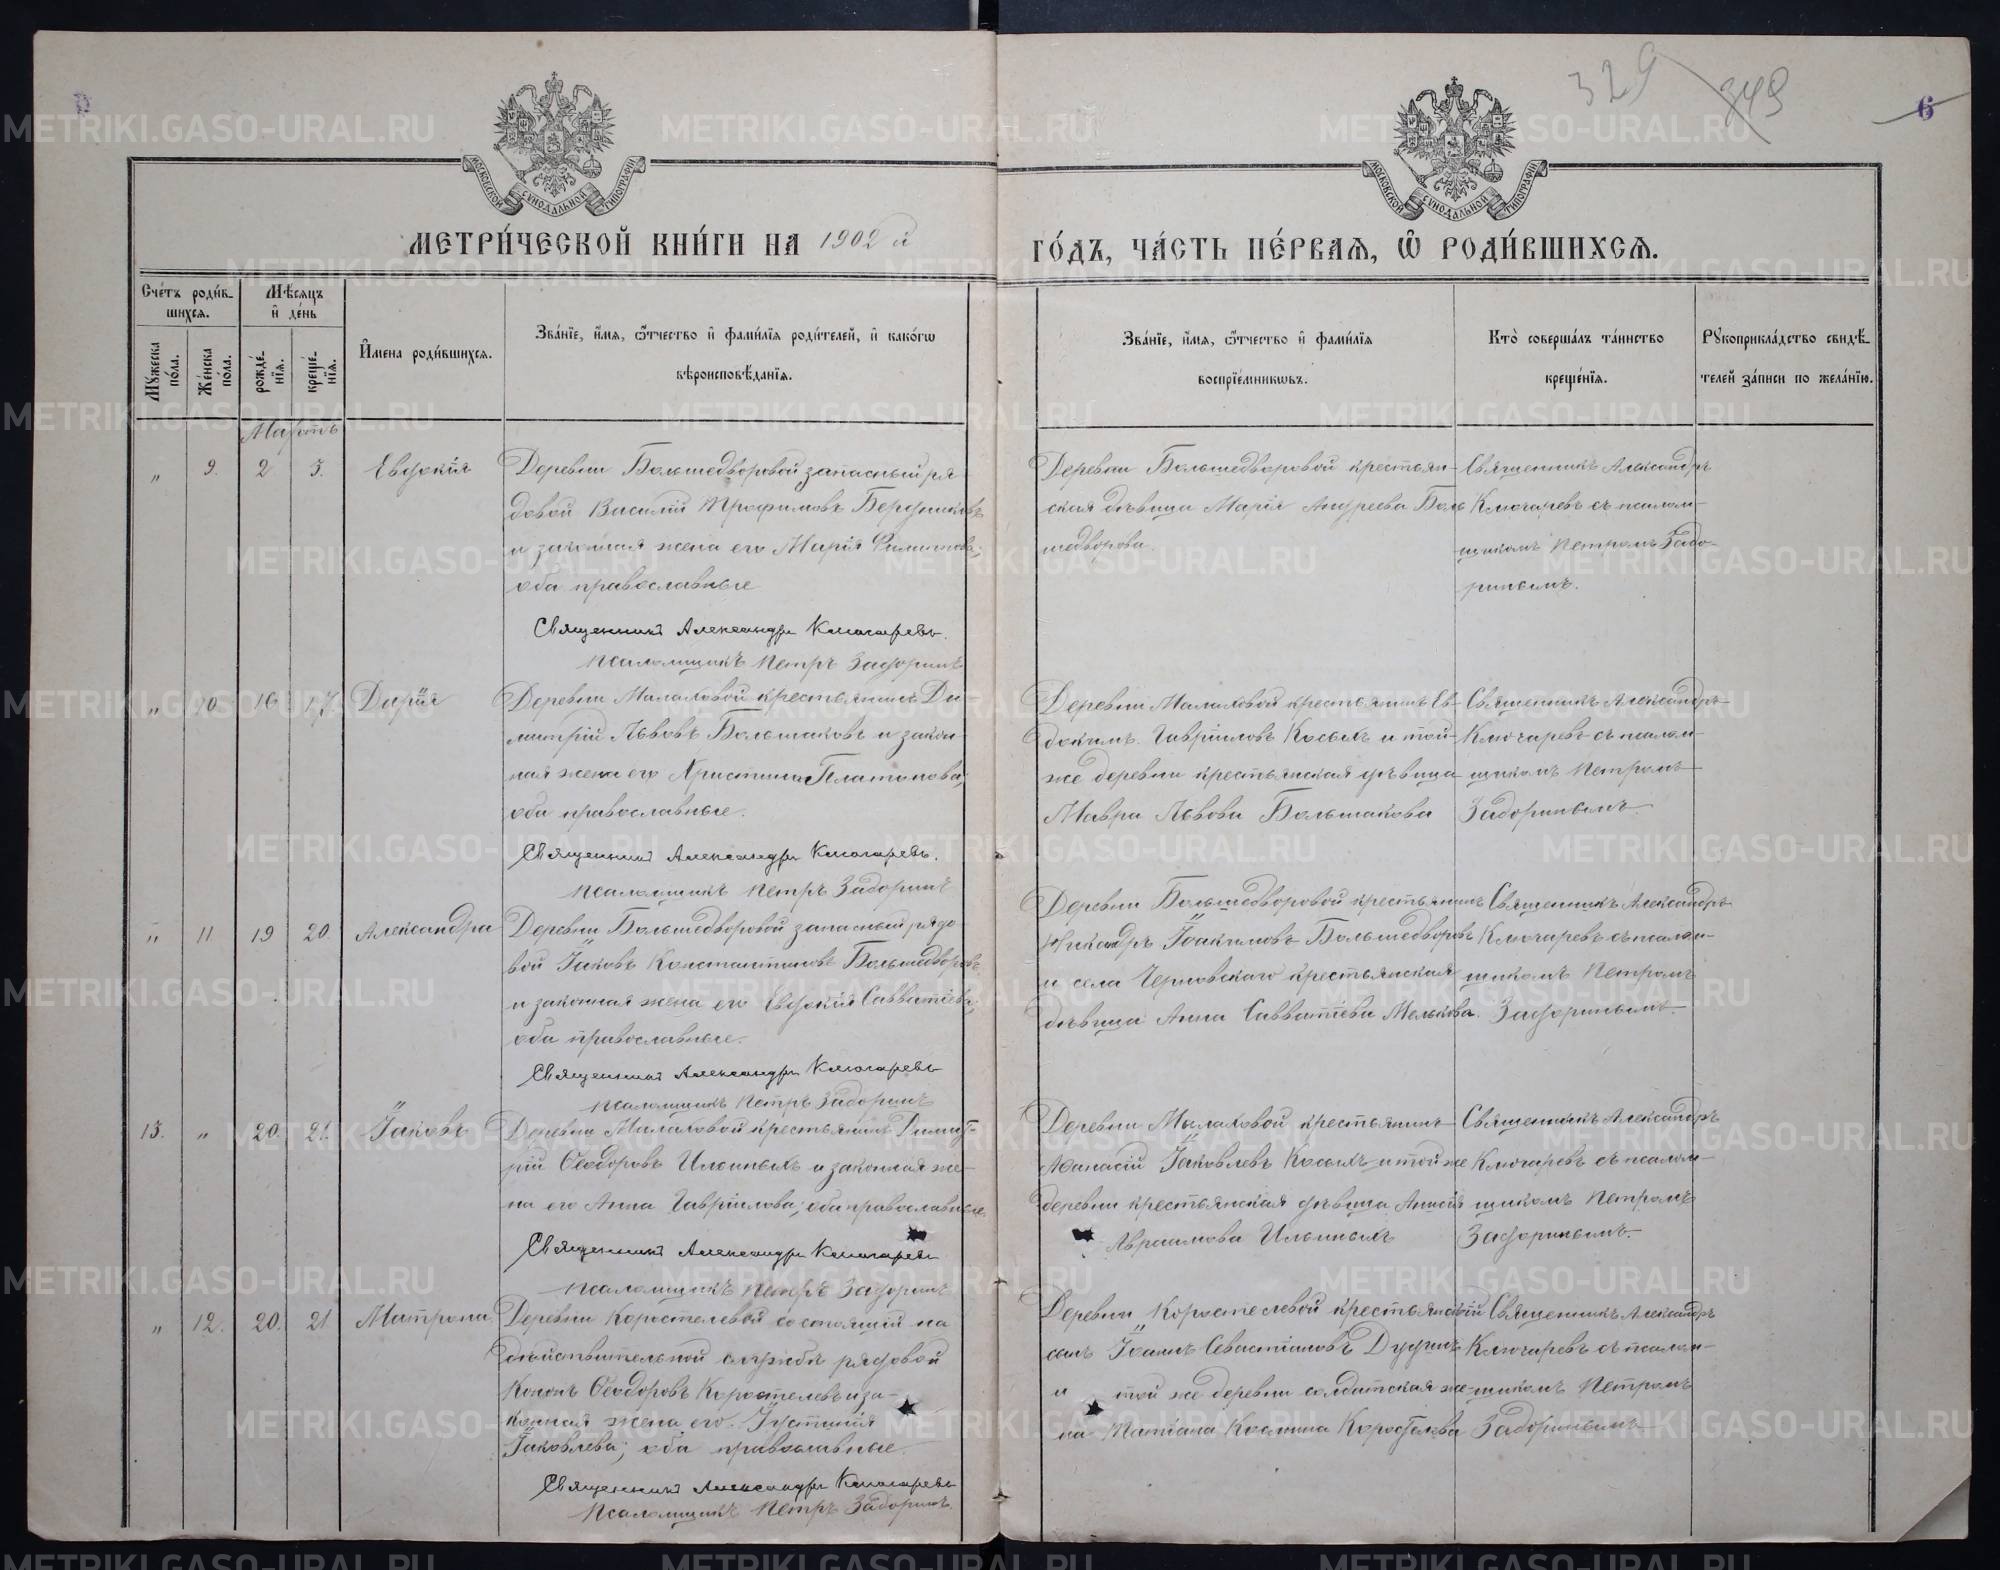 329
349
6
МОСКОВСКОЙ СУНОДАЛЬНОЙ ТИПОГРАФІИ
МОСКОВСКОЙ СУНОДАЛЬНОЙ ТИПОГРАФІИ
МЕТРИ́ЧЕСКОЙ КНИ́ГИ НА 1902 й
ГО́ДЪ, ЧА́СТЬ ПЕ́РВАЯ, Ѡ РОДИ́ВШИХСЯ.
Сче́тъ роди́в-
шихся.
Мѣсяцъ
и де́нь
Му́жеска
по́ла.
Же́нска
по́ла.
рожде́-
нїя.
креще́-
нїя.
И́мена роди́вшихся.
Зва́нїе, и́мя, ѻ́тчество и фами́лїя роди́телей, и како́гѡ
вѣроисповѣ́данїя.
Зва́нїе, и́мя, ѻ́тчество и фами́лїя
воспрїе́мникѡвъ.
Кто̀ соверша́лъ та́инство
креще́нїя.
Рꙋкоприкла́дство свидѣ́-
телей за́писи по жела́нїю.
Мартъ
„ 9. 2 3. Евдокія
Деревни Большедворовой запасный ря
довой Василій Трофимовъ Бердниковъ
и законная жена его Марія Филиппова;
оба православные
Священникъ Александръ Ключаревъ.
Псаломщикъ Петръ Задоринъ
Деревни Большедворовой крестьян-
ская дѣвица Марія Андреева Боль
шедворова.
Священникъ Александръ
Ключаревъ съ псалом-
щикомъ Петромъ Задо-
ринымъ.
„ 10. 16 17. Дарія
Деревни Малаховой крестьянинъ Ди
митрій Львовъ Большаковъ и закон-
ная жена его Христина Платонова;
оба православные.
Священникъ Александръ Ключаревъ.
Псаломщикъ Петръ Задоринъ
Деревни Малаховой крестьянинъ Ев-
докимъ Гавріиловъ Косыхъ и той-
же деревни крестьянская дѣвица
Мавра Львова Большакова
Священникъ Александръ
Ключаревъ съ псалом-
щикомъ Петромъ
Задоринымъ.
„ 11. 19 20. Александра
Деревни Большедворовой запасный рядо
вой Іаковъ Константиновъ Большедворовъ
и законная жена его Евдокія Савватіева,
оба православные.
Священникъ Александръ Ключаревъ
Псаломщикъ Петръ Задоринъ
Деревни Большедворовой крестьянинъ
Никандръ Іоакимовъ Большедворовъ
и села Черновскаго крестьянская
дѣвица Анна Савватіева Мелькова.
Священникъ Александръ
Ключаревъ съ псалом-
щикомъ Петромъ
Задоринымъ.
13. „ 20. 21. Іаковъ
Деревни Малаховой крестьянинъ Димит-
рій Ѳеодоровъ Ильиныхъ и законная же-
на его Анна Гавріилова; оба православные.
Священникъ Александръ Ключаревъ
Псаломщикъ Петръ Задоринъ
Деревни Малаховой крестьянинъ
Аѳанасій Іаковлевъ Косыхъ и той же
деревни крестьянская дѣвица Анисія
Авраамова Ильиныхъ
Священникъ Александръ
Ключаревъ съ псалом-
щикомъ Петромъ
Задоринымъ.
„ 12. 20. 21 Матрона
Деревни Коростелевой состоящій на
дѣйствительной службѣ рядовой
Кононъ Ѳеодоровъ Коростелевъ и за-
конная жена его Іустинія
Іаковлева; оба православные.
Священникъ Александръ Ключаревъ
Псаломщикъ Петръ Задоринъ.
Деревни Коростелевой крестьянскій
сынъ Іоаннъ Севастіановъ Дудинъ
и той же деревни солдатская же-
на Татіана Космина Коростелева
Священникъ Александръ
Ключаревъ съ псалом-
щикомъ Петромъ
Задоринымъ
METRIKI.GASO-URAL.RU